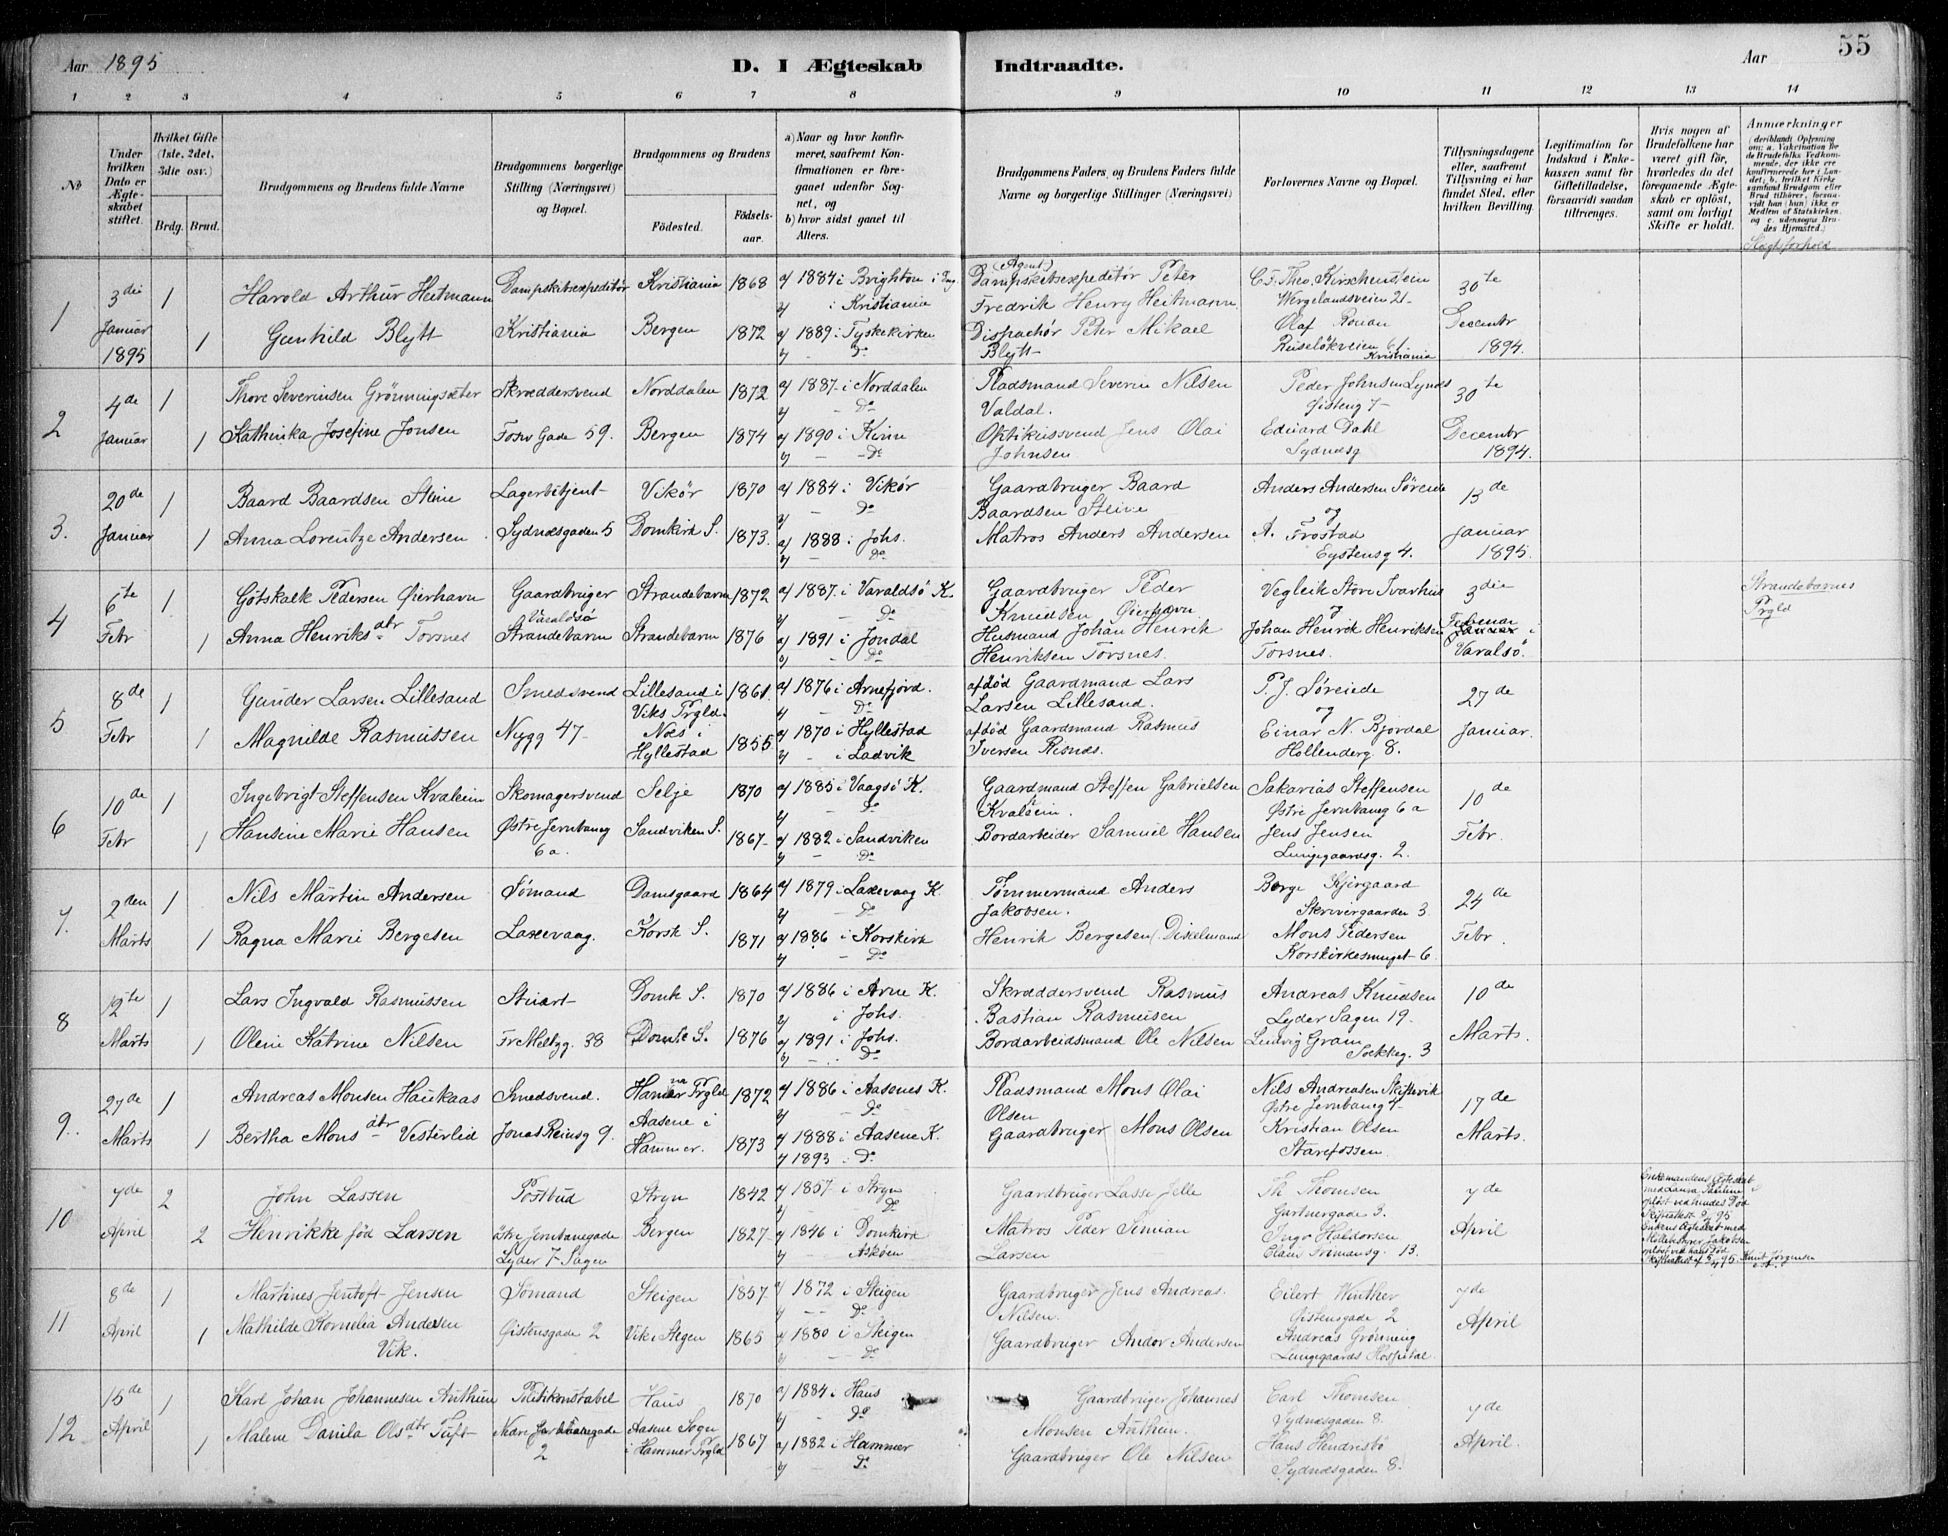 Aar 1895
D. I Ægteskab
Indtraadte.
Aar
55
1 2 3 4 5 6 7 8 9 10 11 12 13 14
No
Under hvilken Dato er Ægteskabet stiftet.
Hvilket Gifte (1ste, 2det, 3die osv.)
Brdg. Brud.
Brudgommens og Brudens fulde Navne
Brudgommens borgerlige Stilling (Næringsvei) og Bopæl.
Brudgommens og Brudens
Födested. Födselsaar.
a) Naar og hvor konfirmeret, saafremt Konfirmationen er foregaaet udenfor Sognet, og
b) hvor sidst gaaet til Alters.
Brudgommens Faders, og Brudens Faders fulde Navne og borgerlige Stillinger (Næringsvei)
Forlovernes Navne og Bopæl.
Tillysningsdagene eller, saafremt Tillysning ei har fundet Sted, efter hvilken Bevilling.
Legitimation for Indskud i Enkekassen samt for Giftetilladelse, forsaavidt saadan tiltrænges.
Hvis nogen af Brudefolkene har været gift för, hvorledes da det foregaaende Ægteskab er oplöst, samt om lovligt Skifte er holdt.
Anmærkninger
(deriblandt Oplysning om: a. Vakcination for de Brudefolks Vedkommende, der ikke ere konfirmerede her i Landet; b. hvilket Kirkesamfund Brudgom eller Brud tilhörer, forsaavidt han (hun) ikke er Medlem af Statskirken, og c. udensogns Brudes Hjemsted.)
Slegtsforhold
1
3die Januar 1895
1
Harold Arthur Heitmann
Dampskibsexpeditör
Kristiania
1868
a) 1884 i Brighton i Eng.
b) i Kristiania
(Agent)
Dampskibsexpeditör Peter
Fredrik Henry Heitmann
C. F. Theo. Kirschenstein
Wergelandsveien 21
30te
Decembr
1894.
1
Gunhild Blytt
Kristiania
Bergen
1872
a) 1889 i Tyskekirken
b) Do
Dispachör Peter Mikael
Blytt
Olaf Rouan
Ruselökveien 61
Kristiania
2
4de Januar
1
Thore Severinsen Grönningsæter
Skræddersvend
Norddalen
1872
a) 1887 i Norddalen
b) Do
Pladsmand Severin Nilsen
Valdal.
Peder Johnsen Lynds
Öisteng 7
30te
Decembr
1894.
1
Kathinka Josefine Jonsen
Fosv Gade 59.
Bergen
1874
a) 1890 i Kvine
b) Do
Optikussvend Jens Olai
Johnsen
Eduard Dahl
Sydnesg
3.
20de Januar
1
Baard Baardsen Steine
Lagerbetjent
Vikör
1870
a) 1884 i Vikör
b) Do
Gaardbruger Baard
Baardsen Steine
Anders Andersen Söreide
og
13de
Januar
1895.
1
Anna Lorentze Andersen
Sydnesgaden 5
Domkirk S.
1873.
a) 1888 i Johs.
b) Do
Matros Anders Andersen
A. Frostad
Eystensg 4.
4
6te Febr
1
Götskalk Pedersen Öierhavn
Gaardbruger
Varaldsö
Strandebarm
1872
a) 1887 i Varaldsö K.
b) Do
Gaardbruger Peder
Knudsen Öierhavn
Vegleik Store Ivarhus
og
3die
Februar
i Varalsö.
Strandebarmes
Prgld
1
Anna Henriksdtr Torsnes
Strandebarm
Strandebarm
1876
a) 1891 i Jondal
b) Do
Husmand Johan Henrik
Henriksen Torsnes.
Johan Henrik Henriksen
Torsnes.
5
8de Febr
1
Gunder Larsen Lillesand
Smedsvend
Lillesand i
Viks Prgld.
1861
a) 1876 i Arnefjord.
b) Do
afdöd Gaardmand Lars
Larsen Lillesand.
P. J. Söreide
og
27de
Januar.
1
Magnilde Rasmussen
Nygg 47
Næs i
Hyllestad
1855
a) 1870 i Hyllestad
b) i Ladvik
afdöd Gaardmand Rasmus
Iversen Risnes.
Einar N. Bjordal
Hollenderg 8.
6
10de Febr
1
Ingebrigt Steffensen Kvalein
Skomagersvend
Selje
1870
a) 1885 i Vaagsö K.
b) Do
Gaardmand Steffen Gabrielsen
Kvalsein.
Sakarias Steffensen
Östre Jernbaneg 6a
10de
Febr.
1
Hansine Marie Hansen
Östre Jernbaneg
6a.
Sandviken S.
1867
a) 1882 i Sandviken
b) Do
Bordarbeider Samuel Hansen
Jens Jensen
Lungegaardsg. 2.
7.
2den Marts
1
Nils Martin Andersen
Sömand
Damsgaard
1864
a) 1879 i Laxevaag K.
b) Do
Tömmermand Anders
Jakobsen.
Börge Kjergaard
Skrivergaarden 3
24de
Febr.
1
Ragna Marie Bergesen
Laxevaag.
Korsk S.
1871
a) 1886 i Korskirk
b) Do
Henrik Bergesen, Diselmand
Mons Pedersen
Korskirkesmuget 6
8
12te Marts
1
Lars Ingvald Rasmussen
Stuart
Domk S.
1870
a) 1886 i Arne K.
b) i Johs.
Skræddersvend Rasmus
Bastian Rasmusen
Andreas Knudsen
Lyder Sagen 19.
10de
Marts.
1
Oline Katrine Nilsen
Fr Meltzg. 38
Domk S.
1876
a) 1891 i Johs.
b) Do
Bordarbeidsmand Ole Nilsen
Ludvig Gram
Sækkeg. 3
9.
27de Marts
1
Andreas Monsen Haukaas
Smedsvend.
Hammer Prgld
1872
a) 1886 i Aasenes K.
b) Do
Pladsmand Mons Olai
Olsen
Nils Andreasen Skjelsvik
Östre Jernbaneg 4
17de
Marts.
1
Bertha Monsdtr Vesterlid
Jonas Reinsg 9.
Aasene i
Hammer.
1873
a) 1888 i Aasene K.
b) 1893 Do
Gaardbruger Mons Olsen
Kristian Olsen
Starefossen.
10
7de April
2
John Lassen
Postbud
Stryn
1842
a) 1857 i Stryn
b) Do
Gaardbruger Lasse Jelle
Th Thomsen
Gartnergade 3.
7de
April
Enkemandens Ægteskab
med Laura Pauline
oplöst ved hendes Död
Skifteattest 2/4 95
Enkens Ægteskab med
Möllebestyrer Jakobsen
oplöst ved hans Död
Skifteattest af 5/4 95. Knut Jörgensen
2
Henrikke föd Larsen
Östre Jernbanegade
Lyder 7 Sagen
Bergen
1827
a) 1846 i Domkirk
b) Asköen
Matros Peder Simian
Larsen
Ingv Haldorsen
Claus Frimansg. 13.
11
8de April
1
Martines Jentoft Jensen
Sömand
Steigen
1857
a) 1872 i Steigen
b) Do
Gaardbruger Jens Andreas
Nilsen.
Eilert Winther
Öistensgade 2
7de
April
1
Mathilde Kornelia Andersen
Vik.
Öistensgade 2
Vik i Stegen
1865
a) 1880 i Steigen
b) Do
Gaardbruger Andor Andersen
Andreas Grönning
Lungegaards Hospital.
12
15de April
1
Karl Johan Johannesen Authun
Politikonstabel
Haus
1870
a) 1884 i Haus
b) Do
Gaardbruger Johannes
Monsen Authun.
Carl Thomsen
Sydnesgaden 8.
7de
April.
1
Malene Danila Olsdtr Tuft
Nedre Jernbanegade
2
Aasene Sogn
i Hammer Prgld
1867
a) 1882 i Hammer
b) Do
Gaardbruger Ole Nilsen
Hans Hendresbö
Sydnesgaden 8.